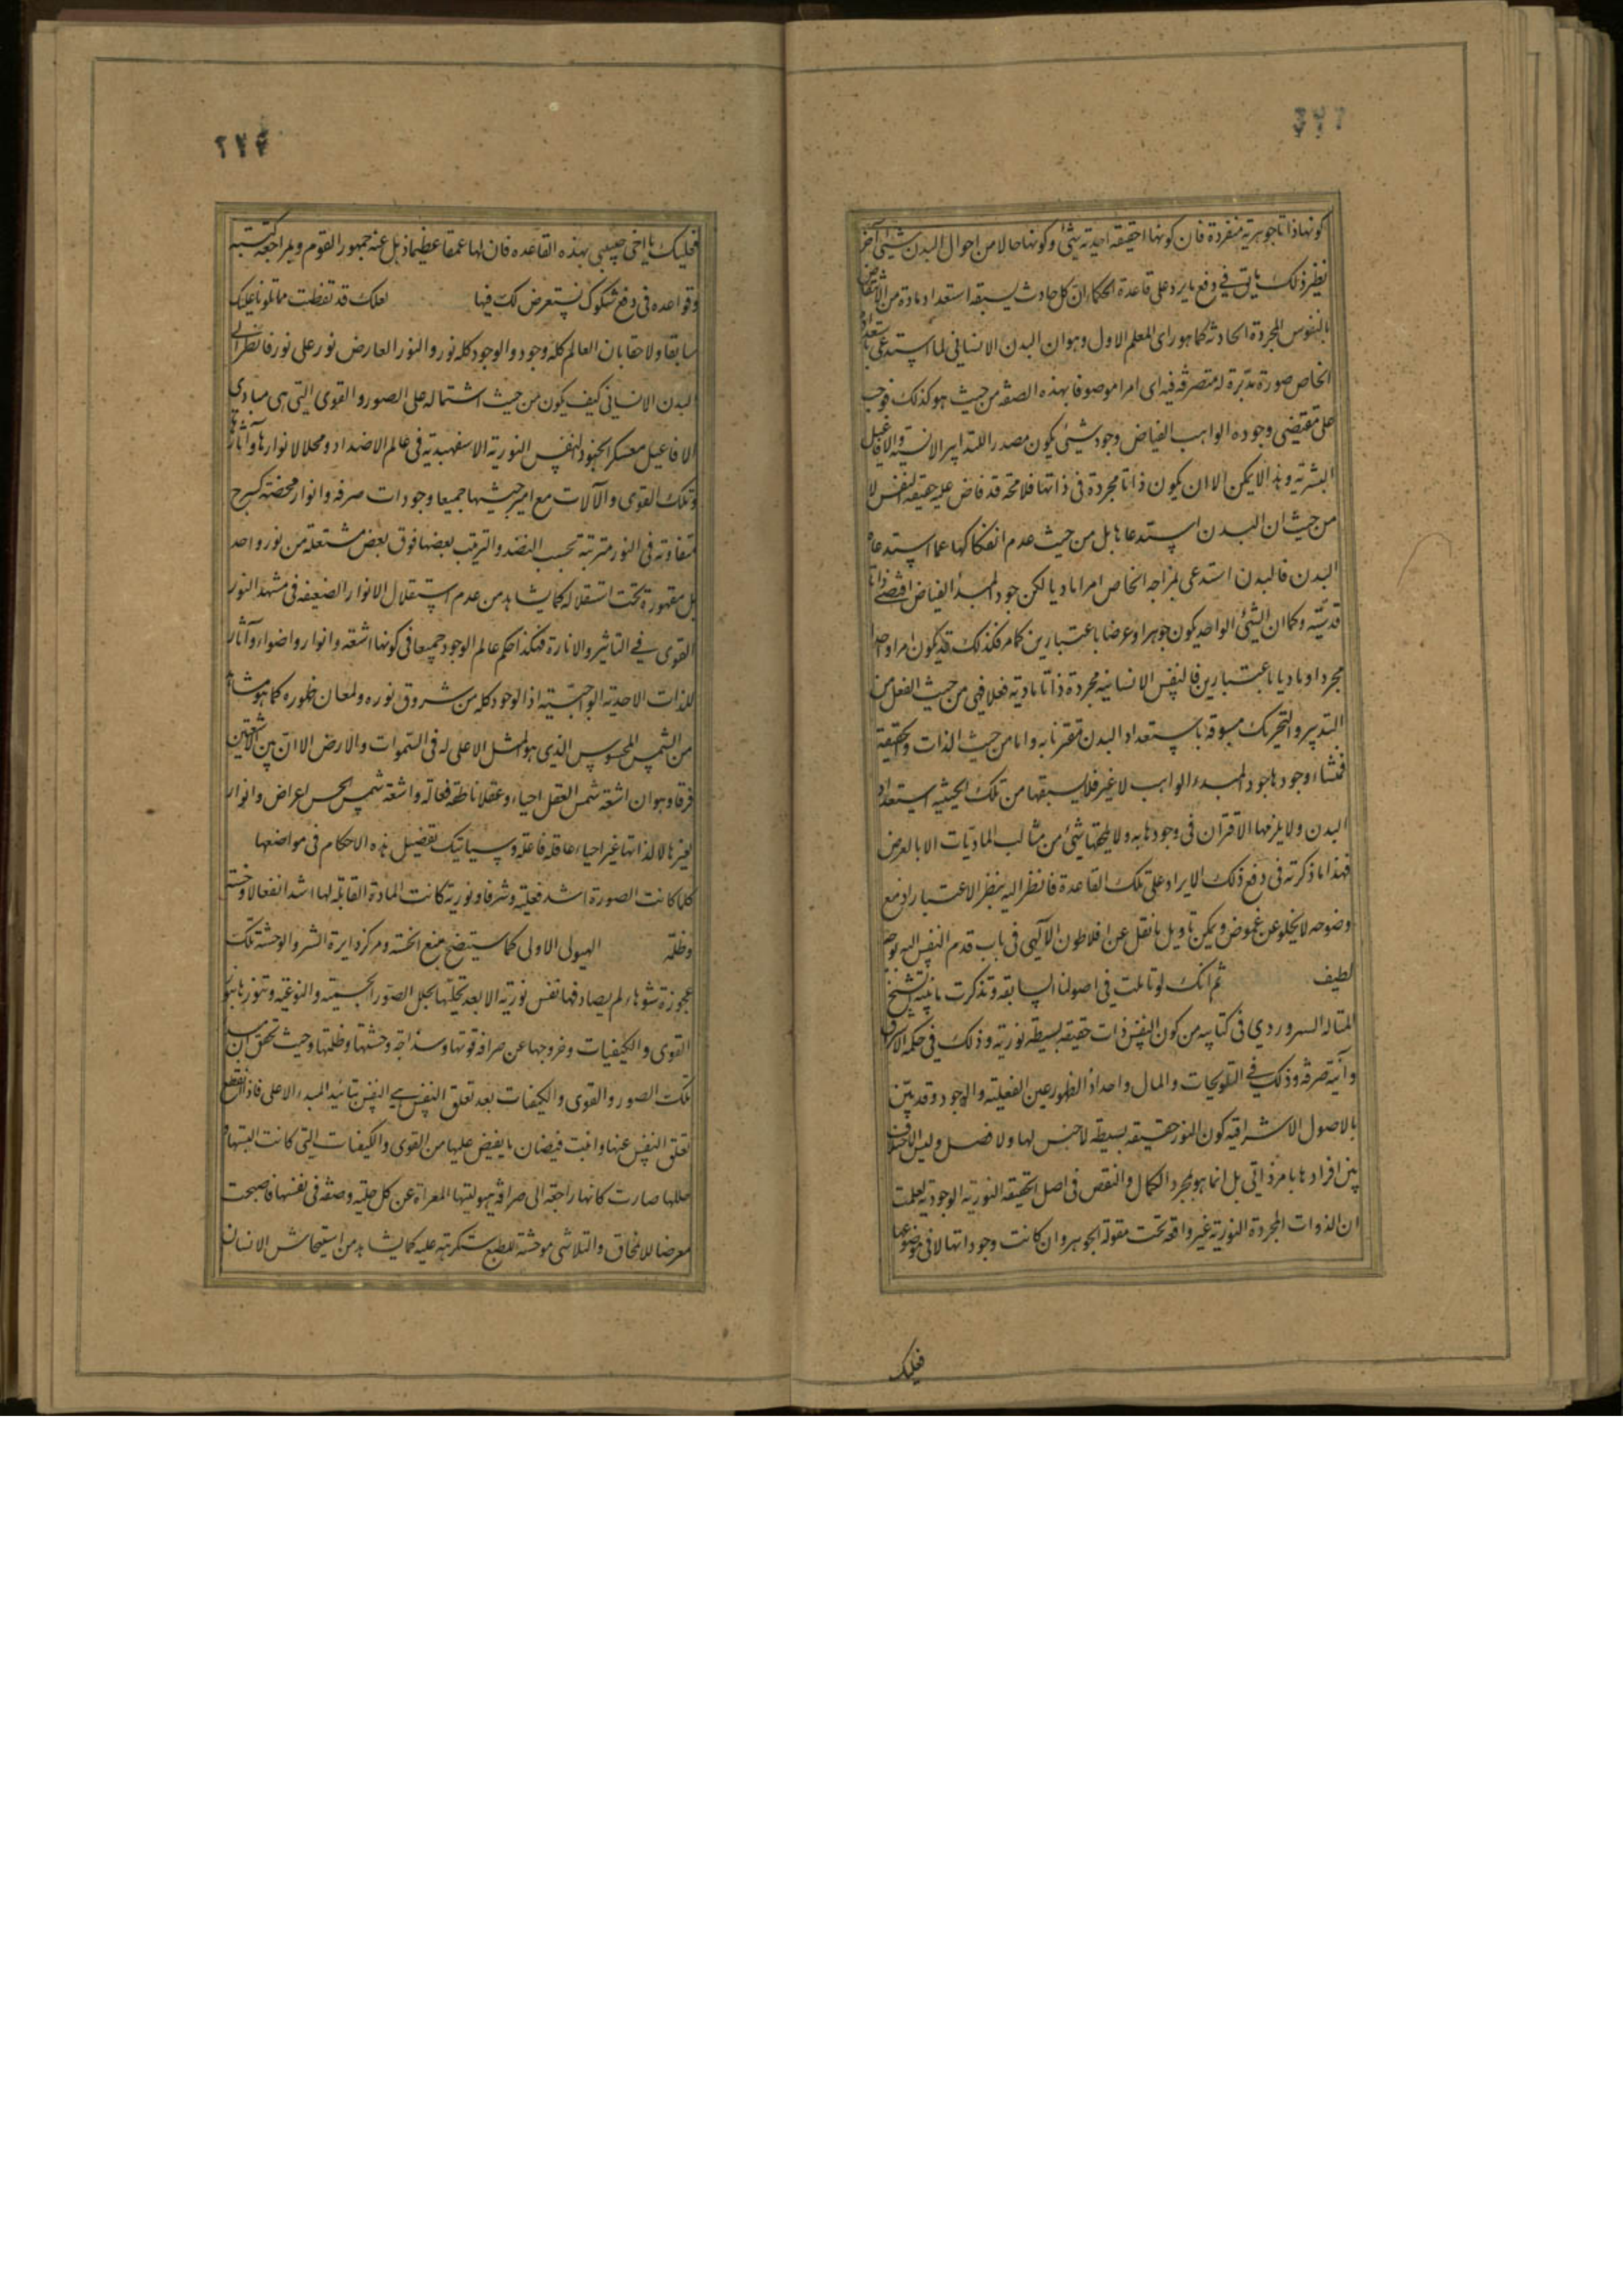 ٢٢٦
كونها ذاتا جوهرية منفردة فان كونها حقيقة احدية شئ وكونها حالا من احوال البدن شئ آخر
نظير ذلك ما يق في دفع ما يرد على قاعدة الحكماء ان كل حادث يسبقه استعداد مادة من الانتقاض
بالنفوس المجردة الحادثة كما هو راى المعلم الاول وهو ان البدن الانسانى لما استدعى باستعداده
الخاص صورة مدبرة له متصرفة فيه اى امرا موصوفا بهذه الصفة من حيث هو كذلك فوجب
على مقتضى وجوده الواهب الفياض وجود شئ يكون مصدر التدابير الانسية والافاعيل
البشرية وهذا لا يمكن الا ان يكون ذاتا مجردة فى ذاتها فلا محة قد فاض عليه حقيقة النفس لا
من حيث ان البدن استدعاها بل من حيث عدم انفكاكها عما استدعاه
البدن فالبدن استدعى بمزاجه الخاص امرا ماديا لكن جود المبدأ الفياض اقتضى ذاتا
قدسية وكما ان الشئ الواحد يكون جوهرا وعرضا باعتبارين كما مر فكذلك قد يكون امر واحد
مجردا وماديا باعتبارين فالنفس الانسانية مجردة ذاتا مادية فعلا فهى من حيث الفعل من
التدبير والتحريك مسبوقة باستعداد البدن مقترنة به واما من حيث الذات والحقيقة
فمنشاء وجودها جود المبدء الواهب لا غير فلا يسبقها من تلك الحيثية استعداد
البدن ولا يلزمها الاقتران فى وجودها به ولا يلحقها شئ من مثالب الماديات الا بالعرض
فهذا ما ذكرته فى دفع ذلك الايراد على تلك القاعدة فانظر اليه بنظر الاعتبار اذ مع
وضوحه لا يخلو عن غموض ويمكن تاويل ما نقل عن افلاطون الالهى فى باب قدم النفس اليه بوجه
لطيف ثم انك لو تاملت فى اصولنا السابقة وتذكرت ما نبه الشيخ
المتاله السهروردي فى كتابيه من كون النفس ذات حقيقة بسيطة نورية وذلك فى حكمة الاشراق
وانية صرفة وذلك في التلويحات والمال واحد اذ الظهور عين الفعلية والوجود وقد بين
بالاصول الاشراقية كون النور حقيقة بسيطة لا جنس لها ولا فصل وليس الاختلاف
بين افرادها بامر ذاتي بل انما هو بمجرد الكمال والنقص فى اصل الحقيقة النورية الوجودية لعلمت
ان الذوات المجردة النورية غير واقعة تحت مقولة الجوهر وان كانت وجوداتها لا فى موضوعها
فعليك
٢٢٤
فعليك يا اخى حبيبى بهذه القاعدة فان لها عمقا عظيما ذهل عنه جمهور القوم وبمراجعة كتبه
وقواعده فى دفع شكوك نستعرض لك فيها لعلك قد تفطنت مما تلوناه عليك
سابقا ولاحقا بان العالم كله وجود والوجود كله نور والنور العارض نور على نور فانظر الى
البدن الانسانى كيف يكون من حيث اشتماله على الصور والقوى التى هى مبادى
الافاعيل معسكر الجنود النفس النورية الاسفهبدية فى عالم الاضداد ومحلا لانوارها وآثارها
وتلك القوى والآلات مع اميرجيشها جميعا وجودات صرفة وانوار محضة كسرج
متفاوتة فى النور مترتبة بحسب النضد والترتيب بعضها فوق بعض مشتعلة من نور واحد
بل مقهورة تحت استقلاله كما يشاهد من عدم استقلال الانوار الضعيفة فى مشهد النور
القوى في التاثير والانارة فهكذا حكم عالم الوجود جميعا فى كونها اشعة وانوار واضواء وآثار
للذات الاحدية الواجبية اذ الوجود كله من شروق نوره ولمعان ظهوره كما هو مشاهد
من الشمس المحسوس الذي هو المثل الاعلى له فى السموات والارض الا ان بين الاشعتين
فرقا وهو ان اشعة شمس العقل احياء وعقلا ناطقة فعالة واشعة شمس الحس اعراض وانوار
لغيرها لا لذاتها غير احياء عاقلة فاعلة وسياتيك تفصيل هذه الاحكام فى مواضعها
كلما كانت الصورة اشد فعلية وشرفا ونورية كانت المادة القابلة لها اشد انفعالا وخسة
وظلمة الهيولى الاولى كما ستيضح منبع الخسة ومركز دايرة الشر والوحشة تلك
عجوزة شوهاء لم يصادفها نفس نورية الا بعد تحليتها بحلل الصور الجسمية والنوعية وتنورها بتلك
القوى والكيفيات وخروجها عن صرافة قوتها وسذاجة وحشتها وظلمتها وحيث تحقق ان مبدا
تلك الصور والقوى والكيفيات بعد تعلق النفس هي النفس بتائيد المبدء الاعلى فاذا انقطع
تعلق النفس عنها وانبت فيضان ما يفيض عليها من القوى والكيفيات التى كانت البستها
حللها صارت كانها راجعة الى صرافة هيوليتها المعراة عن كل حلية وصفة فى نفسها فاصبحت
معرضا للانمحاق والتلاشى موحشة للطبع مستكرهة عليه كما يشاهد من استيحاش الانسان